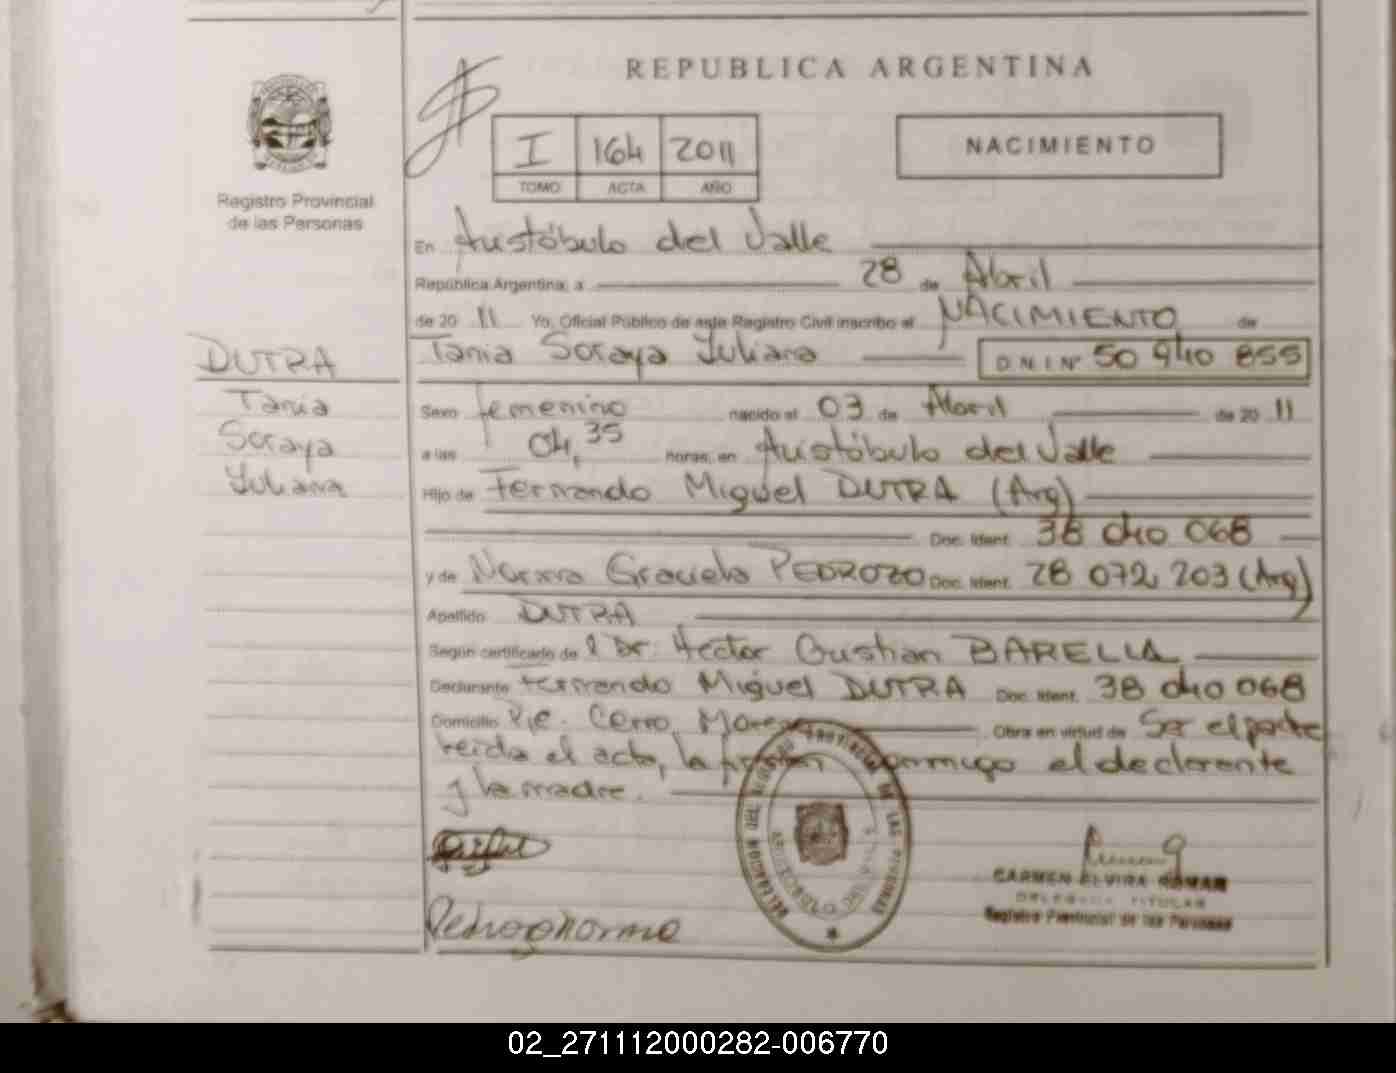 REPUBLICA ARGENTINA
I 164 2011
TOMO ACTA AÑO
NACIMIENTO
Registro Provincial
de las Personas
En Aristóbulo del Valle
República Argentina, a 28 de Abril
de 20 11 Yo, Oficial Público de este Registro Civil inscribo el NACIMIENTO de
DUTRA
Tania
Soraya
Yuliana
Tania Soraya Yuliana D N I Nº 50 940 855
Sexo femenino nacido el 03 de Abril de 20 11
a las 04,35 horas, en Aristóbulo del Valle
Hijo de Fernando Miguel DUTRA (Arg)
Doc. Ident. 38 040 068
y de Norma Graciela PEDROZO Doc. Ident. 28 072 203 (Arg)
Apellido DUTRA
Según certificado de Dr. Hector Cristian BARELLA
Declarante Fernando Miguel DUTRA Doc. Ident. 38 040 068
Domicilio Pje. Cerro Obra en virtud de Ser el padre
leida el acta, la firman conmigo el declarante
y la madre.
Pedrozo norma
CARMEN ELVIRA
DELEGADA TITULAR
Registro Provincial de las Personas
02_271112000282-006770